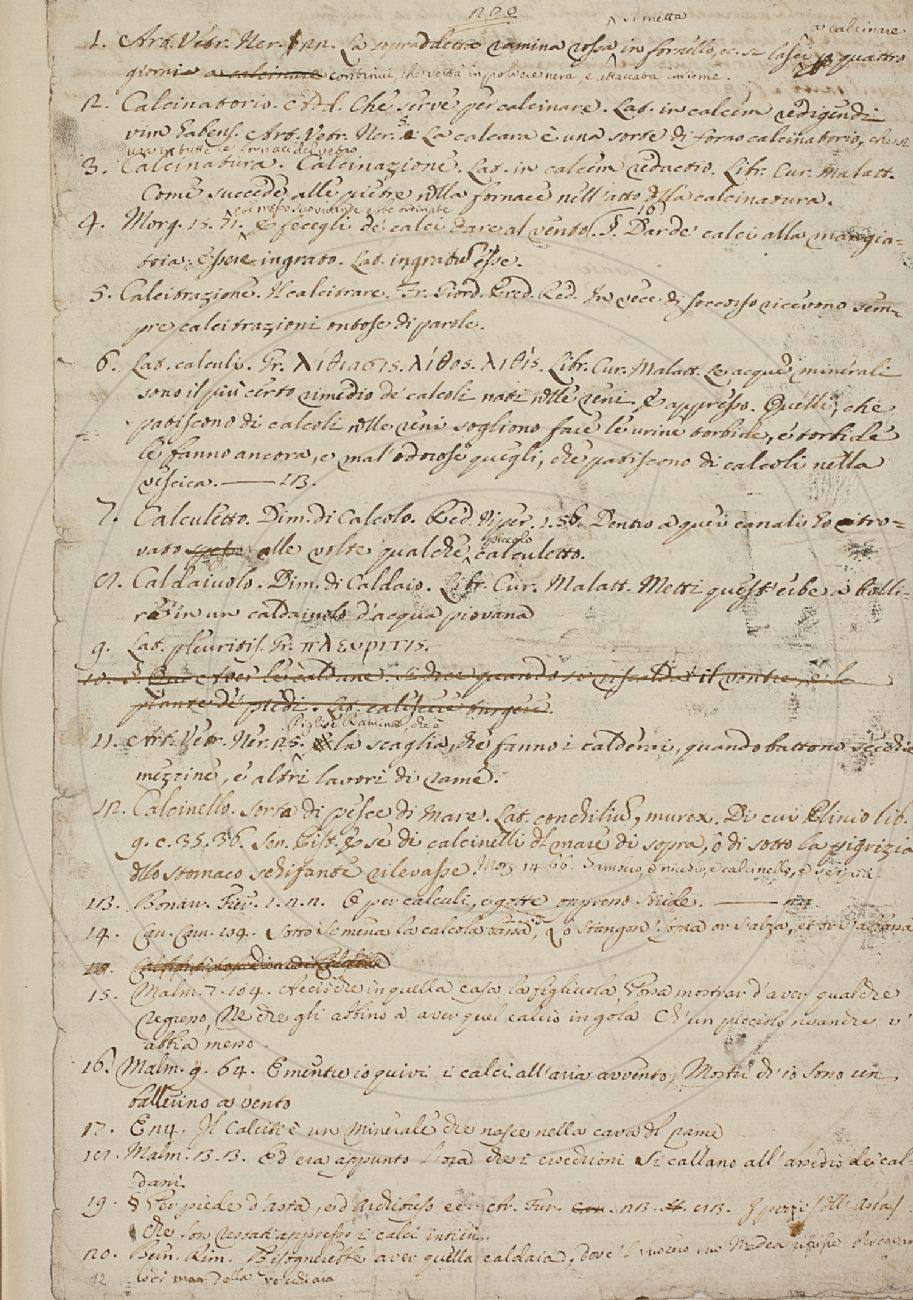 200
si metta
a calcinare
1. Art. Vetr. Ner. 1. 22. La sopraddetta ramina rossa in fornello, ec. si lasci quattro
giorni a calcinare continui, che verrà in polvere nera, e attaccata insieme.
2. Calcinatorio. Add. Che serve per calcinare. Lat. in calcem redigendi
vim habens. Art. Vetr. Ner. La calcara è una sorte di forno calcinatorio, che si
usa in tutte le fornaci del vetro
3. Calcinatura. Calcinazione. Lat. in calcem redactio. Libr. Cur. Malatt.
Come succede alle pietre nella fornace nell'atto della calcinatura.
4. Morg. 15. 31. e fecegli de' calci dare al vento. §. Dar de' calci alla mangia-
toia: essere ingrato. Lat. ingratum esse.
5. Calcitrazione. Il calcitrare. Fr. Giord. Pred. Red. In vece di soccorso ricevono sem-
pre calcitrazioni ontose di parole.
6. Lat. calculi. Gr. λιθιασις. λίθος. λιθίς. Libr. Cur. Malatt. Le acque minerali
sono il più certo rimedio de' calcoli nati nelle reni. E appresso. Quelli, che
patiscono di calcoli nelle reni sogliono fare le urine torbide, e torbide
le fanno ancora, e mal'odorose quegli, che patiscono di calcoli nella
vescica. —— 13.
7. Calculetto. Dim. di Calcolo. Red. Vip. 1. 56. Dentro a quei canali ho ritro-
vato spesso alle volte qualche piccolo calculetto.
8. Caldaiuolo. Dim. di Caldaio. Libr. Cur. Malatt. Metti quest'erbe a bolli-
re in un caldaiuolo d'acqua piovana
9. Lat. pleuritis. Gr. πλευριτις.
piante de' piedi. Lat. calescere
11. Art. Vetr. Ner. 25. Piglisi Ramina, che è la scaglia, che fanno i calderai, quando battono secchie
mezzine, e altri lavori di rame.
12. Calcinello. Sorta di pesce di Mare. Lat. conchilium, murex. Di cui Plinio lib.
9. c. 35. 36. Sen. Pist. E se di calcinelli del mare di sopra, o di sotto la pigrizia
dello stomaco schifante rilevasse. Morg. 14. 66.
113. Bonav. Fier. 1. 2. 2. E per calculi, e gotte ompreno stride.
14. Can. Carn. 104. Sotto si mena la calcola
15. Malm. 7. 104. Accioche in quella casa la figliuola Possa mostrar d'aver qualche
regresso, Nè che gli abbino a aver quel calcio in gola Ch'un picciolo n'anche v'
abbia meno.
16. Malm. 9. 64. E mentre io quivi i calci all'aria avvento, Mostri ch'io sono un
ballerino a vento
17. En4. Il Calcite è un minerale che nasce nella cava del rame
18. Malm. 13. 13. Ed era appunto l'ora che i crocchioni Si callano all'assedio de' cal-
dani
19. § Per piede d'asta, ed'Archibuso ec. Ar. Fur. 23. 83. I pezzi (dell'asta)
Che son restati appresso i calci interi.
20. Bern. Rim. Bisognerebbe aver quella caldaia, dove 'l suocero suo Medea rifusse